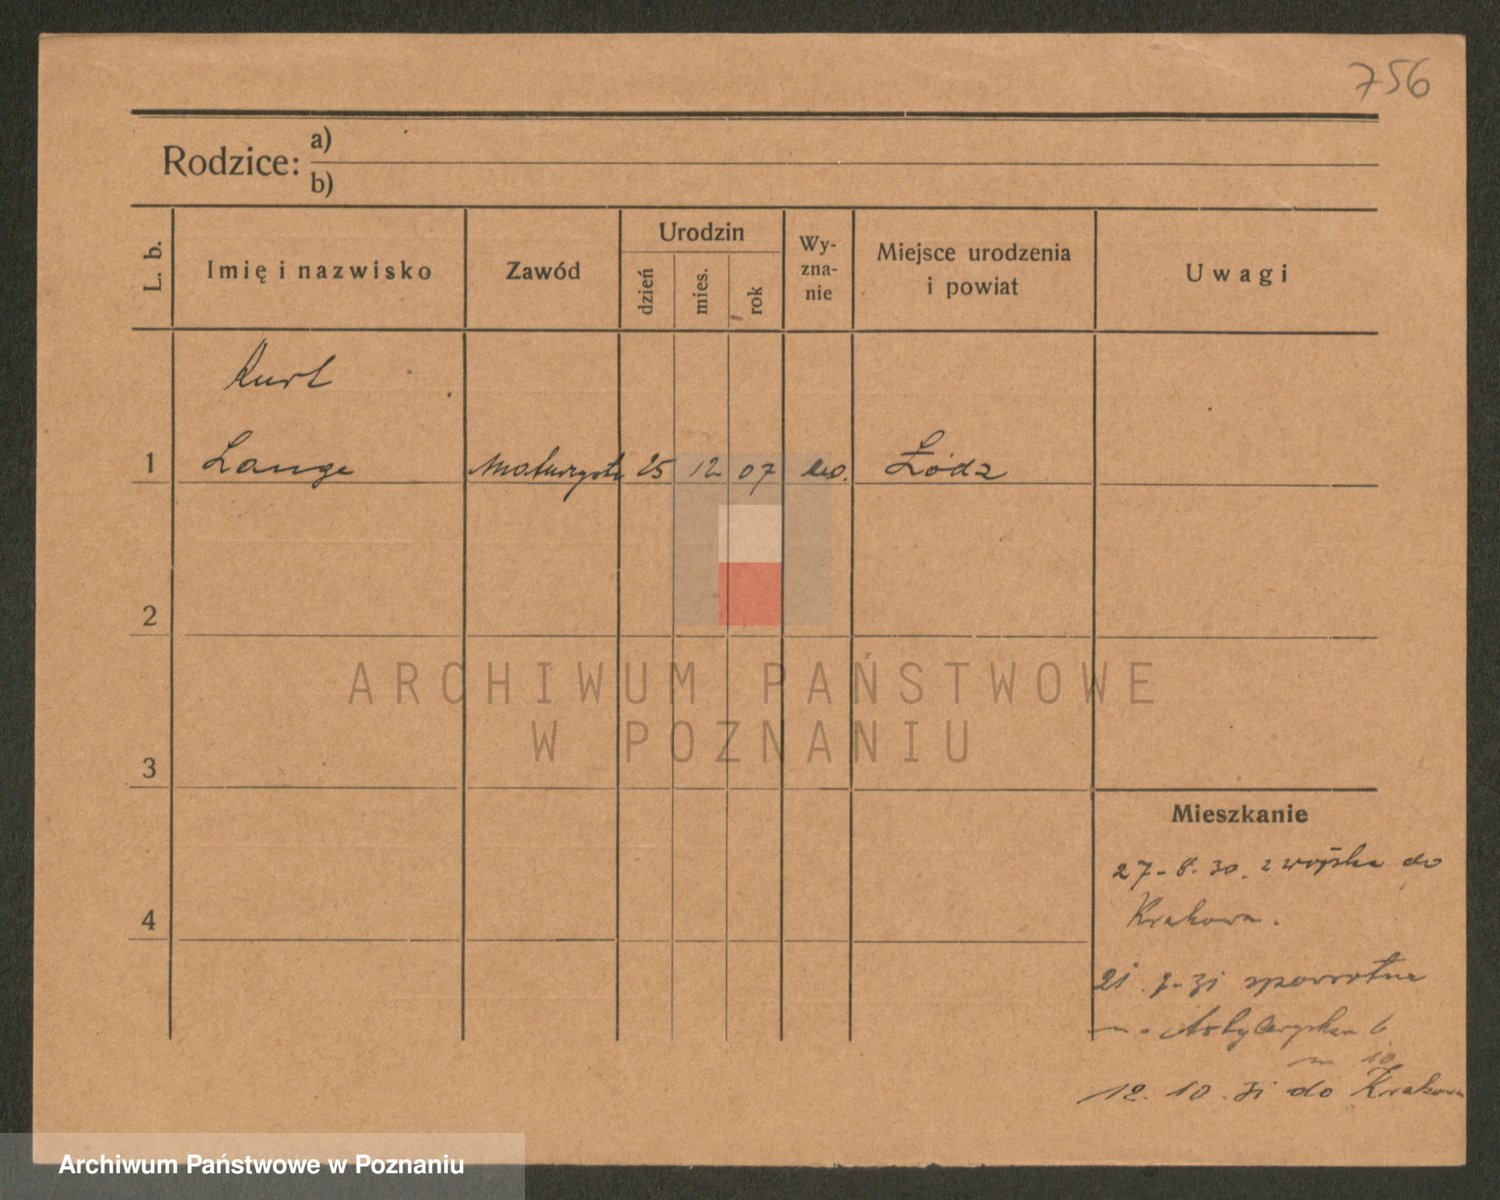 756
Rodzice:
a)
b)
L. b.
Imię i nazwisko
Zawód
Urodzin
dzień
mies.
rok
Wy-
zna-
nie
Miejsce urodzenia
i powiat
Uwagi
Kurt
1 Lange Maturzysta 25 12 07 Łódz
2
3
4
Mieszkanie
27-8.30. z wojska do
Krakowa.
21. 9-31 spowrotne
Artyleryska 6
m 10
12. 10. 31 do Krakowa
ARCHIWUM PAŃSTWOWE
W POZNANIU
Archiwum Państwowe w Poznaniu